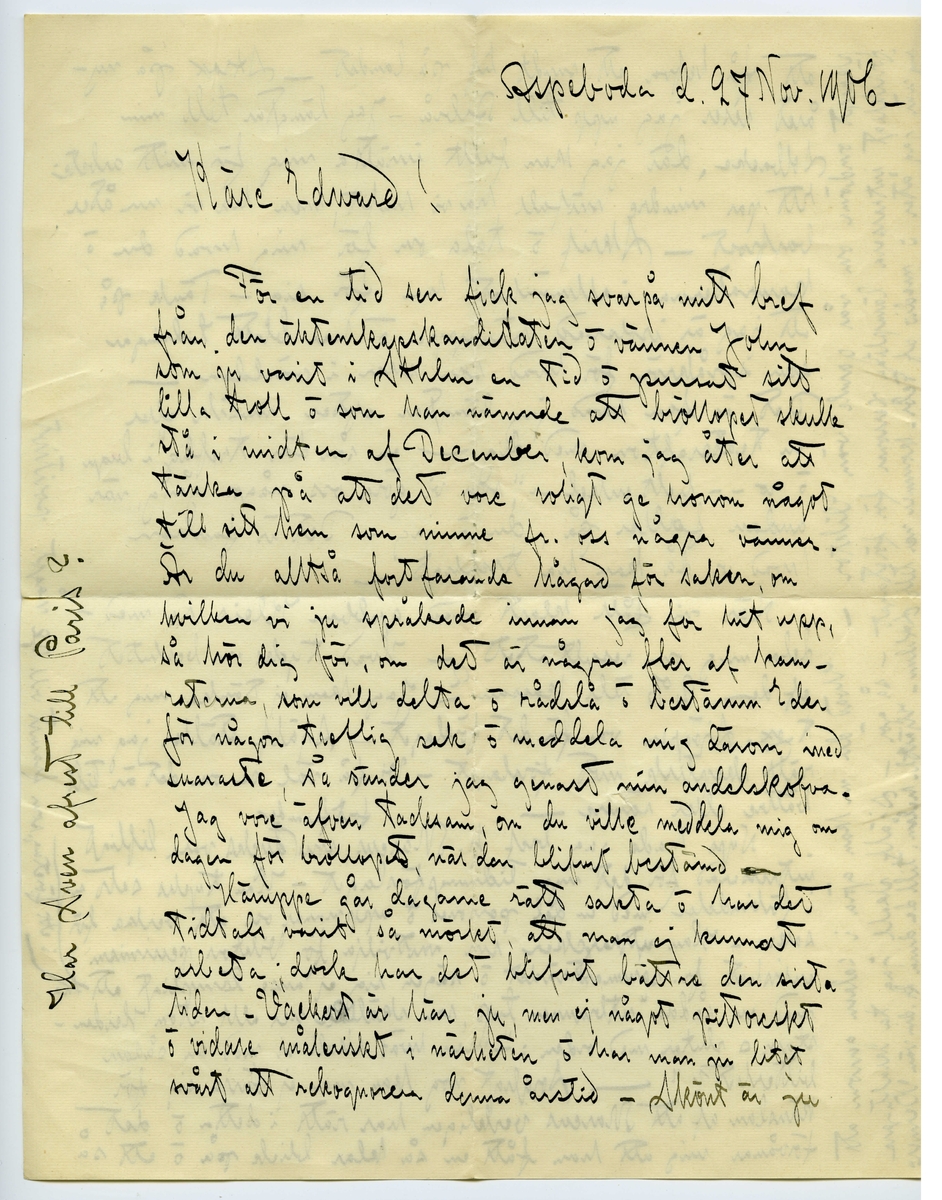 Aspeboda d. 27 Nov. 1906 –
Käre Edward!
För en tid sen fick jag svar på mitt bref
från den äktenskapskanditaten ō vännen John,
som ju varit i Sthlm en tid ō pussat sitt
lilla troll ō som han nämnde att bröllopet skulle
stå i midten af December, kom jag åter att
tänka på att det vore roligt ge honom något
till sitt hem som minne fr. oss några vänner.
Är du alltså fortfarande hågad för saken, om
hvilken vi ju språkade innan jag for hit upp,
så hör dig för, om det är några fler af kam-
raterna, som vill delta ō rådslå ō bestämm Eder
för någon treflig sak ō meddela mig därom med
snaraste, så sänder jag genast min andelskofva.
Jag vore äfven tacksam, om du ville meddela mig om
dagen för bröllopet, när den blifvit bestämd –
Häruppe går dagarne rätt sakta ō har det
tidtals varit så mörkt, att man ej kunnat
arbeta; dock har det blifvit bättre den sista
tiden – Vackert är här ju, men ej något pittoreskt
ō vidare måleriskt i närheten ō har man ju litet
svårt att rekognosera denna årstid – Skönt är ju
Har Sven afrest till Paris?